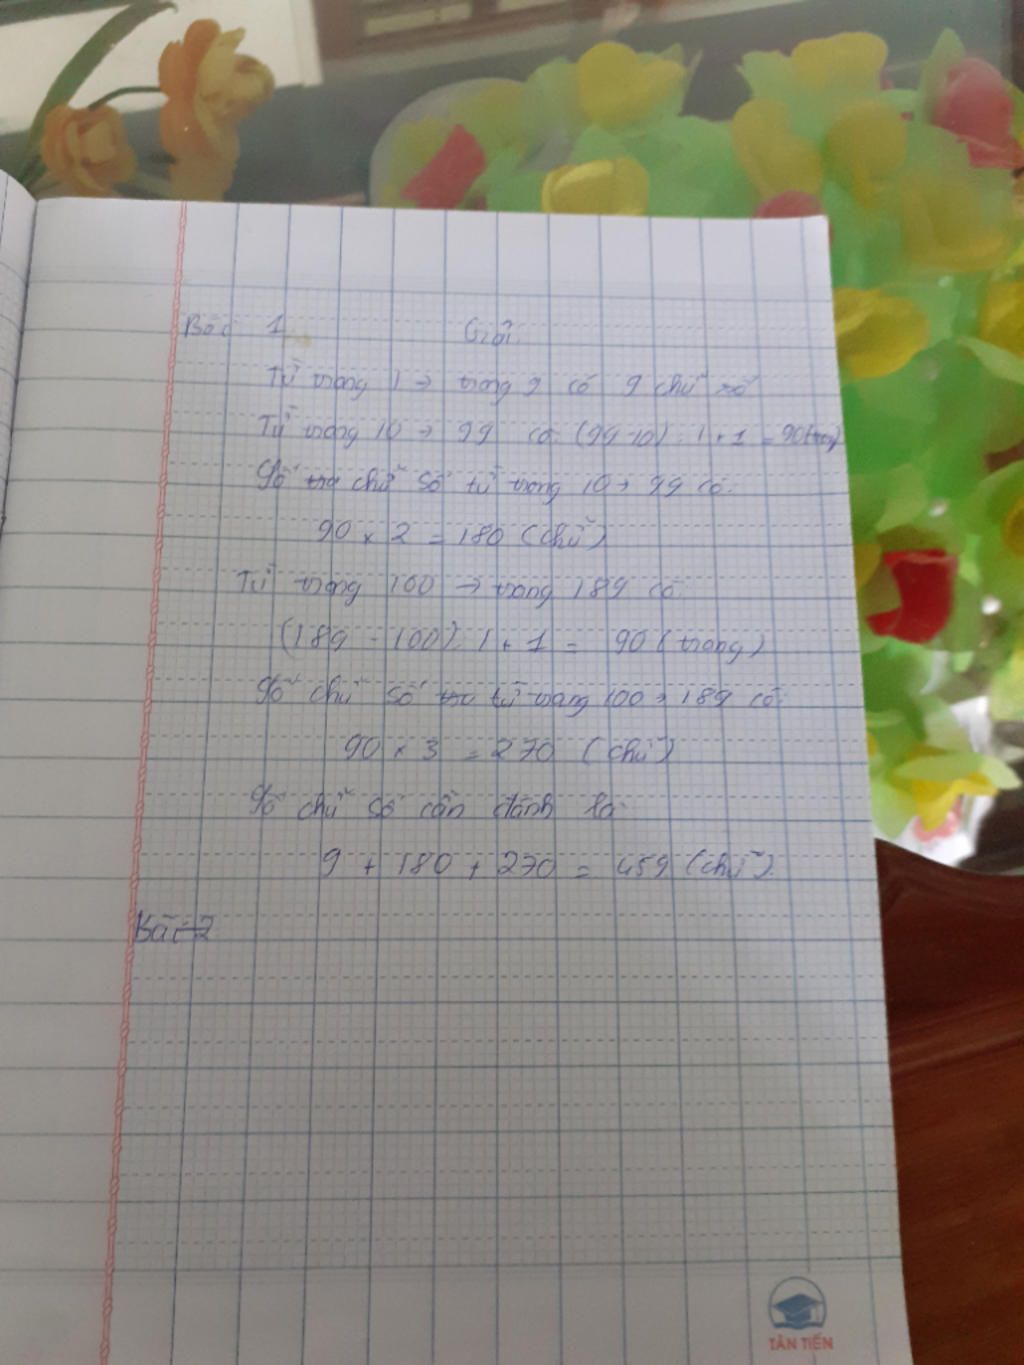 Bài 1 Giải:
Từ trang 1 → trang 9 có 9 chữ số
Từ trang 10 → 99 có: (99-10) : 1 + 1 = 90 (trang)
Số chữ số từ trang 10 → 99 có:
90 × 2 = 180 (chữ)
Từ trang 100 → trang 189 có:
(189 - 100) : 1 + 1 = 90 (trang)
Số chữ số từ trang 100 → 189 có:
90 × 3 = 270 (chữ)
Số chữ số cần đánh là:
9 + 180 + 270 = 459 (chữ).
Bài 2
TÂN TIẾN